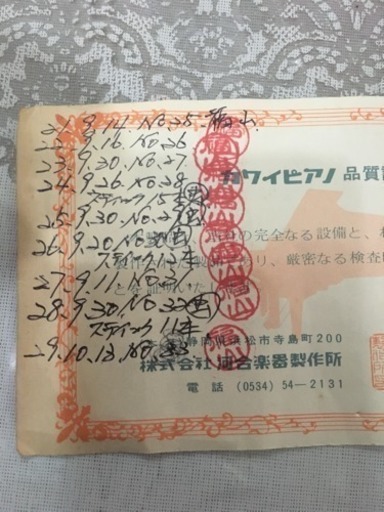 21. 9. 14. No. 25
22. 9. 16. No. 26
23. 9. 30. No. 27
24. 9. 26. No. 28
スティック15本
25. 9. 30. No. 29
26. 9. 20. No. 30
スティック12本
27. 9. 11. No. 31.
28. 9. 30. No. 32
スティック11本
29. 10. 13. No. 33
カワイピアノ 品質
の完全なる設備と、
り、厳密なる検査
とを証明いた
静岡県浜松市寺島町200
株式会社 河合楽器製作所
電話 (0534) 54-2131